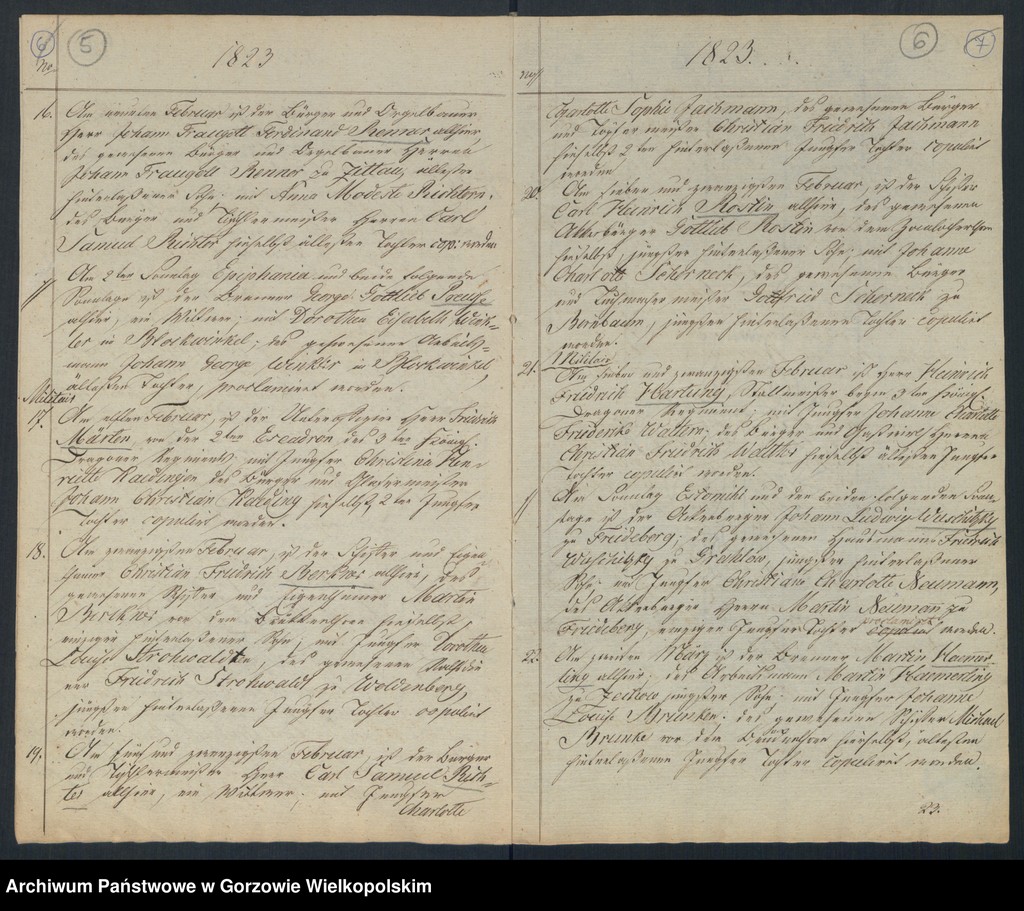 6 5
No
1823
16. Am neunten Februar ist der Bürger und Orgelbauer
Herr Johann Traugott Ferdinand Renner allhier
des gewesenen Bürger und Orgelbauer Herren
Johann Traugott Renner zu Zittau, ältester
hinterlaßener Sohn; mit Anna Modeste Richtern,
des Bürger und Tischlermeister Herren Carl
Samuel Richter hieselbst ältesten Tochter cop: worden
// Am 2ten Sonntag Epiphania und beide folgende
Sonntage ist der Brenner George Gottlieb
allhier, ein Wittwer; mit Dorothea Elisabeth Wink-
ler in Blockwinkel; des gewesenen Arbeits-
mann Johann George Winkler in Blockwinkel,
ältesten Tochter, proclamirt worden.
Militair
17. Am Februar, ist der Herr Friedrich
Märten, von der 2ten Escadron des 3ten Königl.
Dragoner Regiments; mit Jungfer Christina Hen-
riette Raedingen des Bürger und Glasermeister
Johann Christian Raeding hieselbst 2ten Jungfer
Tochter copulirt worden.
18. Am zwanzigsten Februar, ist der Schiffer und Eigen-
thümer Christian Friedrich allhier, des
gewesenen Schiffer und Eigenthümer Martin
vor dem Brückenthore hieselbst,
einziger hinterlaßener Sohn; mit Jungfer Dorothea
Louise Strohwaldten, des gewesenen
ner Friedrich Strohwaldt zu Woldenberg,
jüngsten hinterlaßenen Jungfer Tochter copulirt
worden.
19. Am fünf und zwanzigsten Februar, ist der Bürger
und Tischlermeister Herr Carl Samuel Rich-
ter allhier, ein Wittwer; mit Jungfer
Charlotte
6 7
1823.
Charlotte Sophie Jachmann, des gewesenen Bürger
und Töpfermeister Christian Friedrich Jachmann
hieselbst 2ten hinterlaßenen Jungfer Tochter copulirt
worden
20. Am sieben und zwanzigsten Februar, ist der Schiffer
Carl Heinrich Rostin allhier, des gewesenen
Ackerbürger Gottlieb Rostin vor dem
hieselbst, jüngster hinterlaßener Sohn; mit Johanne
Charlotte Scherneck, des gewesenen Bürger
und Tuchmachermeister Gottfried Scherneck zu
Bernbachen, jüngsten hinterlaßenen Tochter copulirt
worden.
Militair
21. Am sieben und zwanzigsten Februar ist Herr Heinrich
Friedrich Hartung, Stallmeister beym 3ten Königl.
Dragoner Regiment; mit Jungfer Johanne Charlotte
Friederike Waltern; des Bürger und Gastwirth Herren
Christian Friedrich Walther hieselbst ältesten Jungfer
Tochter copulirt worden.
// Am Sonntag Estomihi und den beiden folgenden Sonn-
tage ist der Ackerbürger Johann Ludwig Wuschitzky
zu Friedeberg; des gewesenen Friedrich
Wuschitzky zu Gresklow, jüngster hinterlaßener
Sohn mit Jungfer Christiane Charlotte Neumann,
des Ackerbürger Herren Martin Neumann zu
Friedeberg, einzigen Jungfer Tochter copulirt worden.
proclamirt
22. Am zweiten März ist der Brenner Martin Haemer-
ling allhier; des Arbeitsmann Martin Haemerling
zu Zechow jüngster Sohn; mit Jungfer Johanne
Louise Brunken; des gewesenen Schiffer Michael
Brunke vor dem Brückenthore hieselbst, ältesten
hinterlaßenen Jungfer Tochter copulirt worden.
23.
Archiwum Państwowe w Gorzowie Wielkopolskim